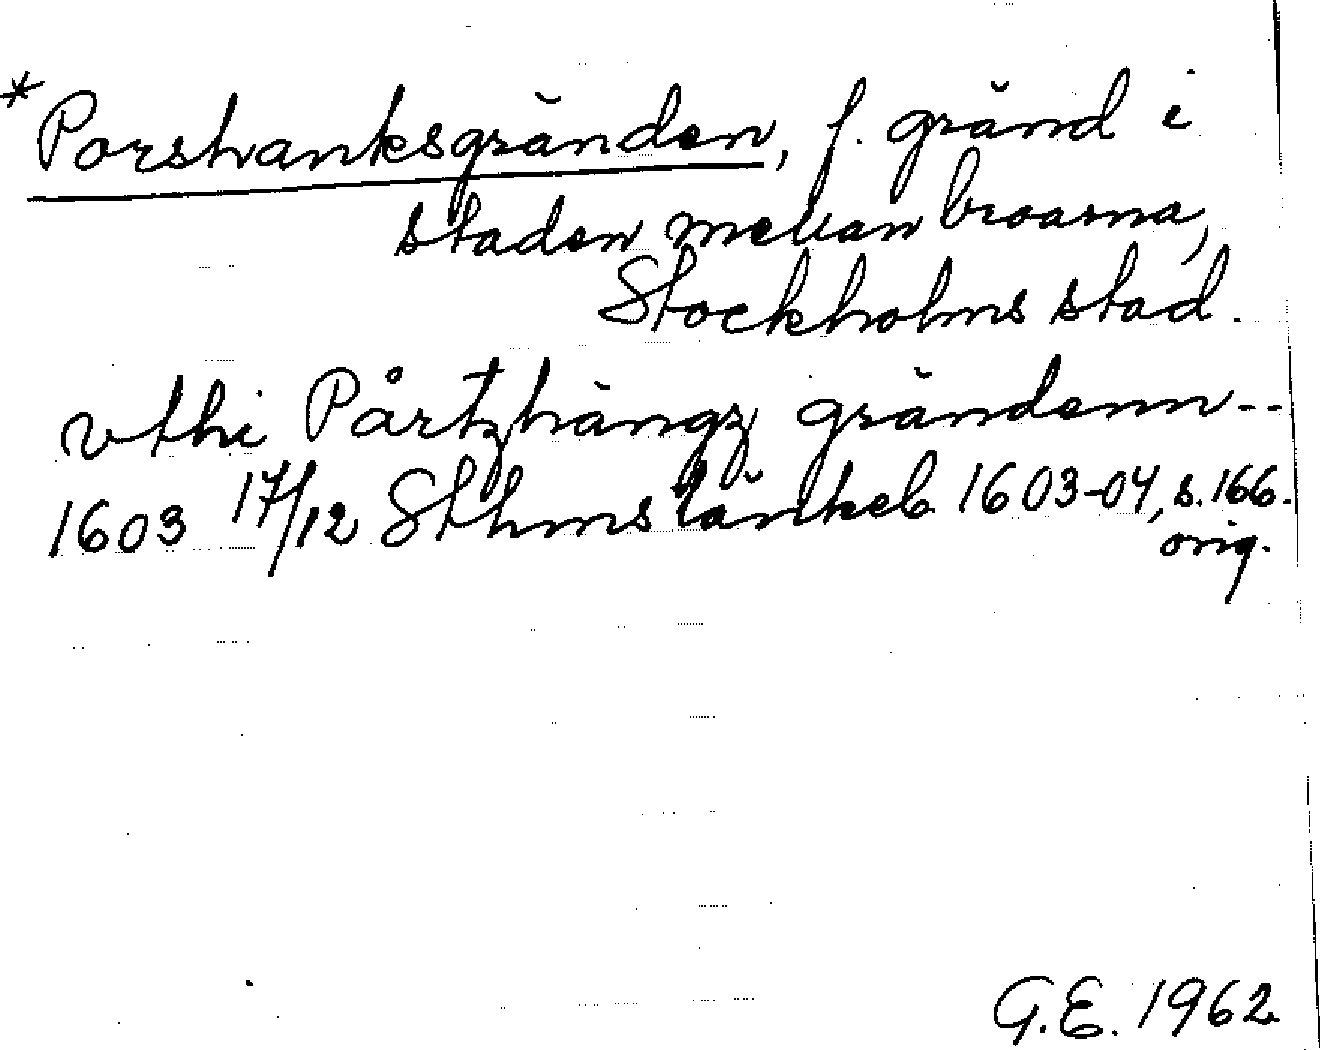 *Porshanksgränden, f. gränd i
staden mellan broarna,
Stockholms stad.
vthi Pårtzhängz grändenn--
1603 17/12 Sthms tänkeb. 1603-04, s. 166.
orig.
G.E. 1962